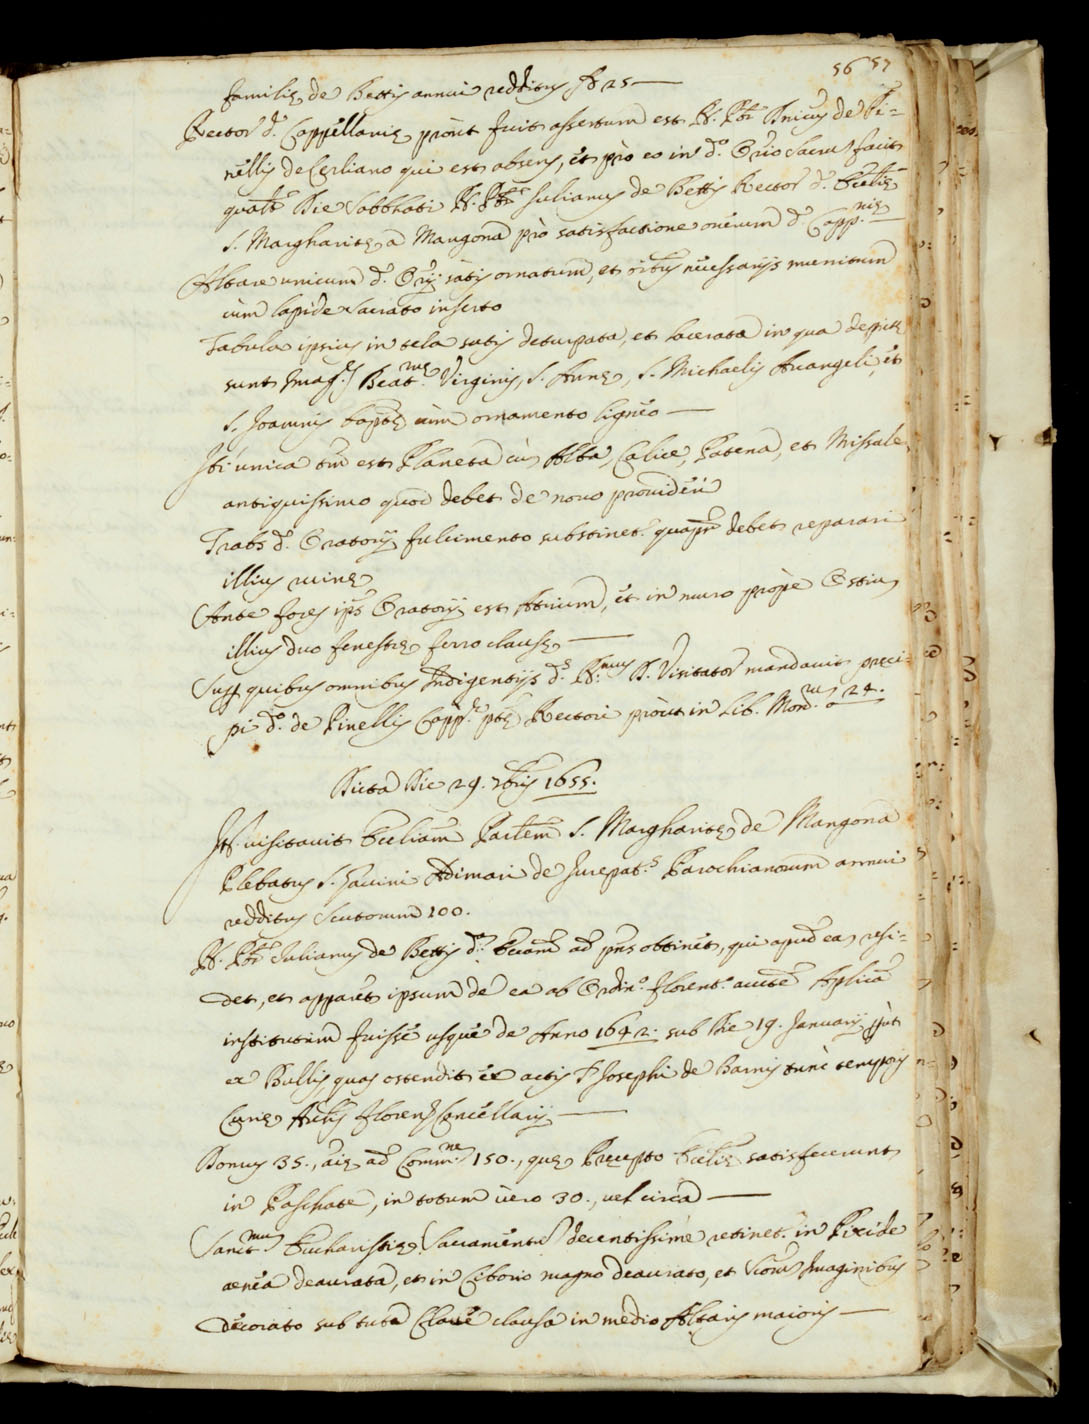 56 57
familie de Bettis annui redditus # 25 —
Rector d. Cappellanie, prout fuit assertum est R. Pbr Dnicus de Pi=
nellis de Cerliano qui est absens, et pro eo in d.o Orio sacru facit
qualt Die Sabbati R. Pbr Julianus de Bettis Rector d. Ecclie
S. Margharite a Mangona pro satisfactione onerum d. Capp.nie —
Altare unicum d. Orij satis ornatum, et oibus necessarijs munitum
cum lapide sacrato inserto
Tabula ipsius in tela satis deturpata, et lacerata in qua depicte
sunt Imag.s Beat.me Virginis, S. Anne, S. Michaelis Arcangeli, et
S. Joannis bapte cum ornamento ligneo —
Ibi unica tm est Planeta cu Alba, Calice, Patena, et Missale
antiquissimo quod debet de novo provideri
Trabs d. Oratorij fulcimento substinet. quapp debet reparari
illius ruine
Ante fores ips Oratorij est Atrium, et in muro prope Ostiu
illius duo fenestre ferro clause —
Supp quibus omnibus Indigentijs d.s R.mus D. Visitator mandavit preci=
pi d.o de Pinellis Capp.e pte Rectori prout in Lib. Mon.rum a 24.
Dicta Die 29. 7bris 1655.
It. visitavit Eccliam Parlem S. Margharite de Mangona
Plebatus S. Gavini Adimari de Jurepat.s Parochianorum annui
redditus Scutorum 100.
R. Pbr Julianus de Bettis d. Eccam ad pns obtinet, qui apud ea resi=
det, et apparet ipsum de ea ab Ordin.o florent.o aucte Aplica
institutum fuisse usque de Anno 1642. sub Die 19. Januarij put
ex Bullis quas ostendit ex actis Josephi de Barnis tunc temporis
Curie Archis floren Cancellarij —
Domus 35., aie ad Comm.ne 150., que Precepto Ecclie satisfecerunt
in Paschate, in totum vero 30., vel circa —
Sanct.mum Eucharistie Sacramentu decentissime retinet. in Pixide
aenea deaurata, et in Ciborio magno deaurato, et Scoru Imaginibus
decorato sub tuta Clave clausa in medio Altaris maioris —